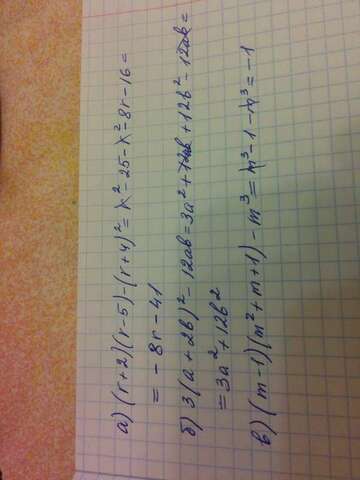 а) (r+2)(r-5)-(r+4)² = r²-25-r²-8r-16=
= -8r-41
б) 3(a+2b)²-12ab=3a²+12ab+12b²-12ab=
=3a²+12b²
в) (m-1)(m²+m+1)-m³=m³-1-m³=-1